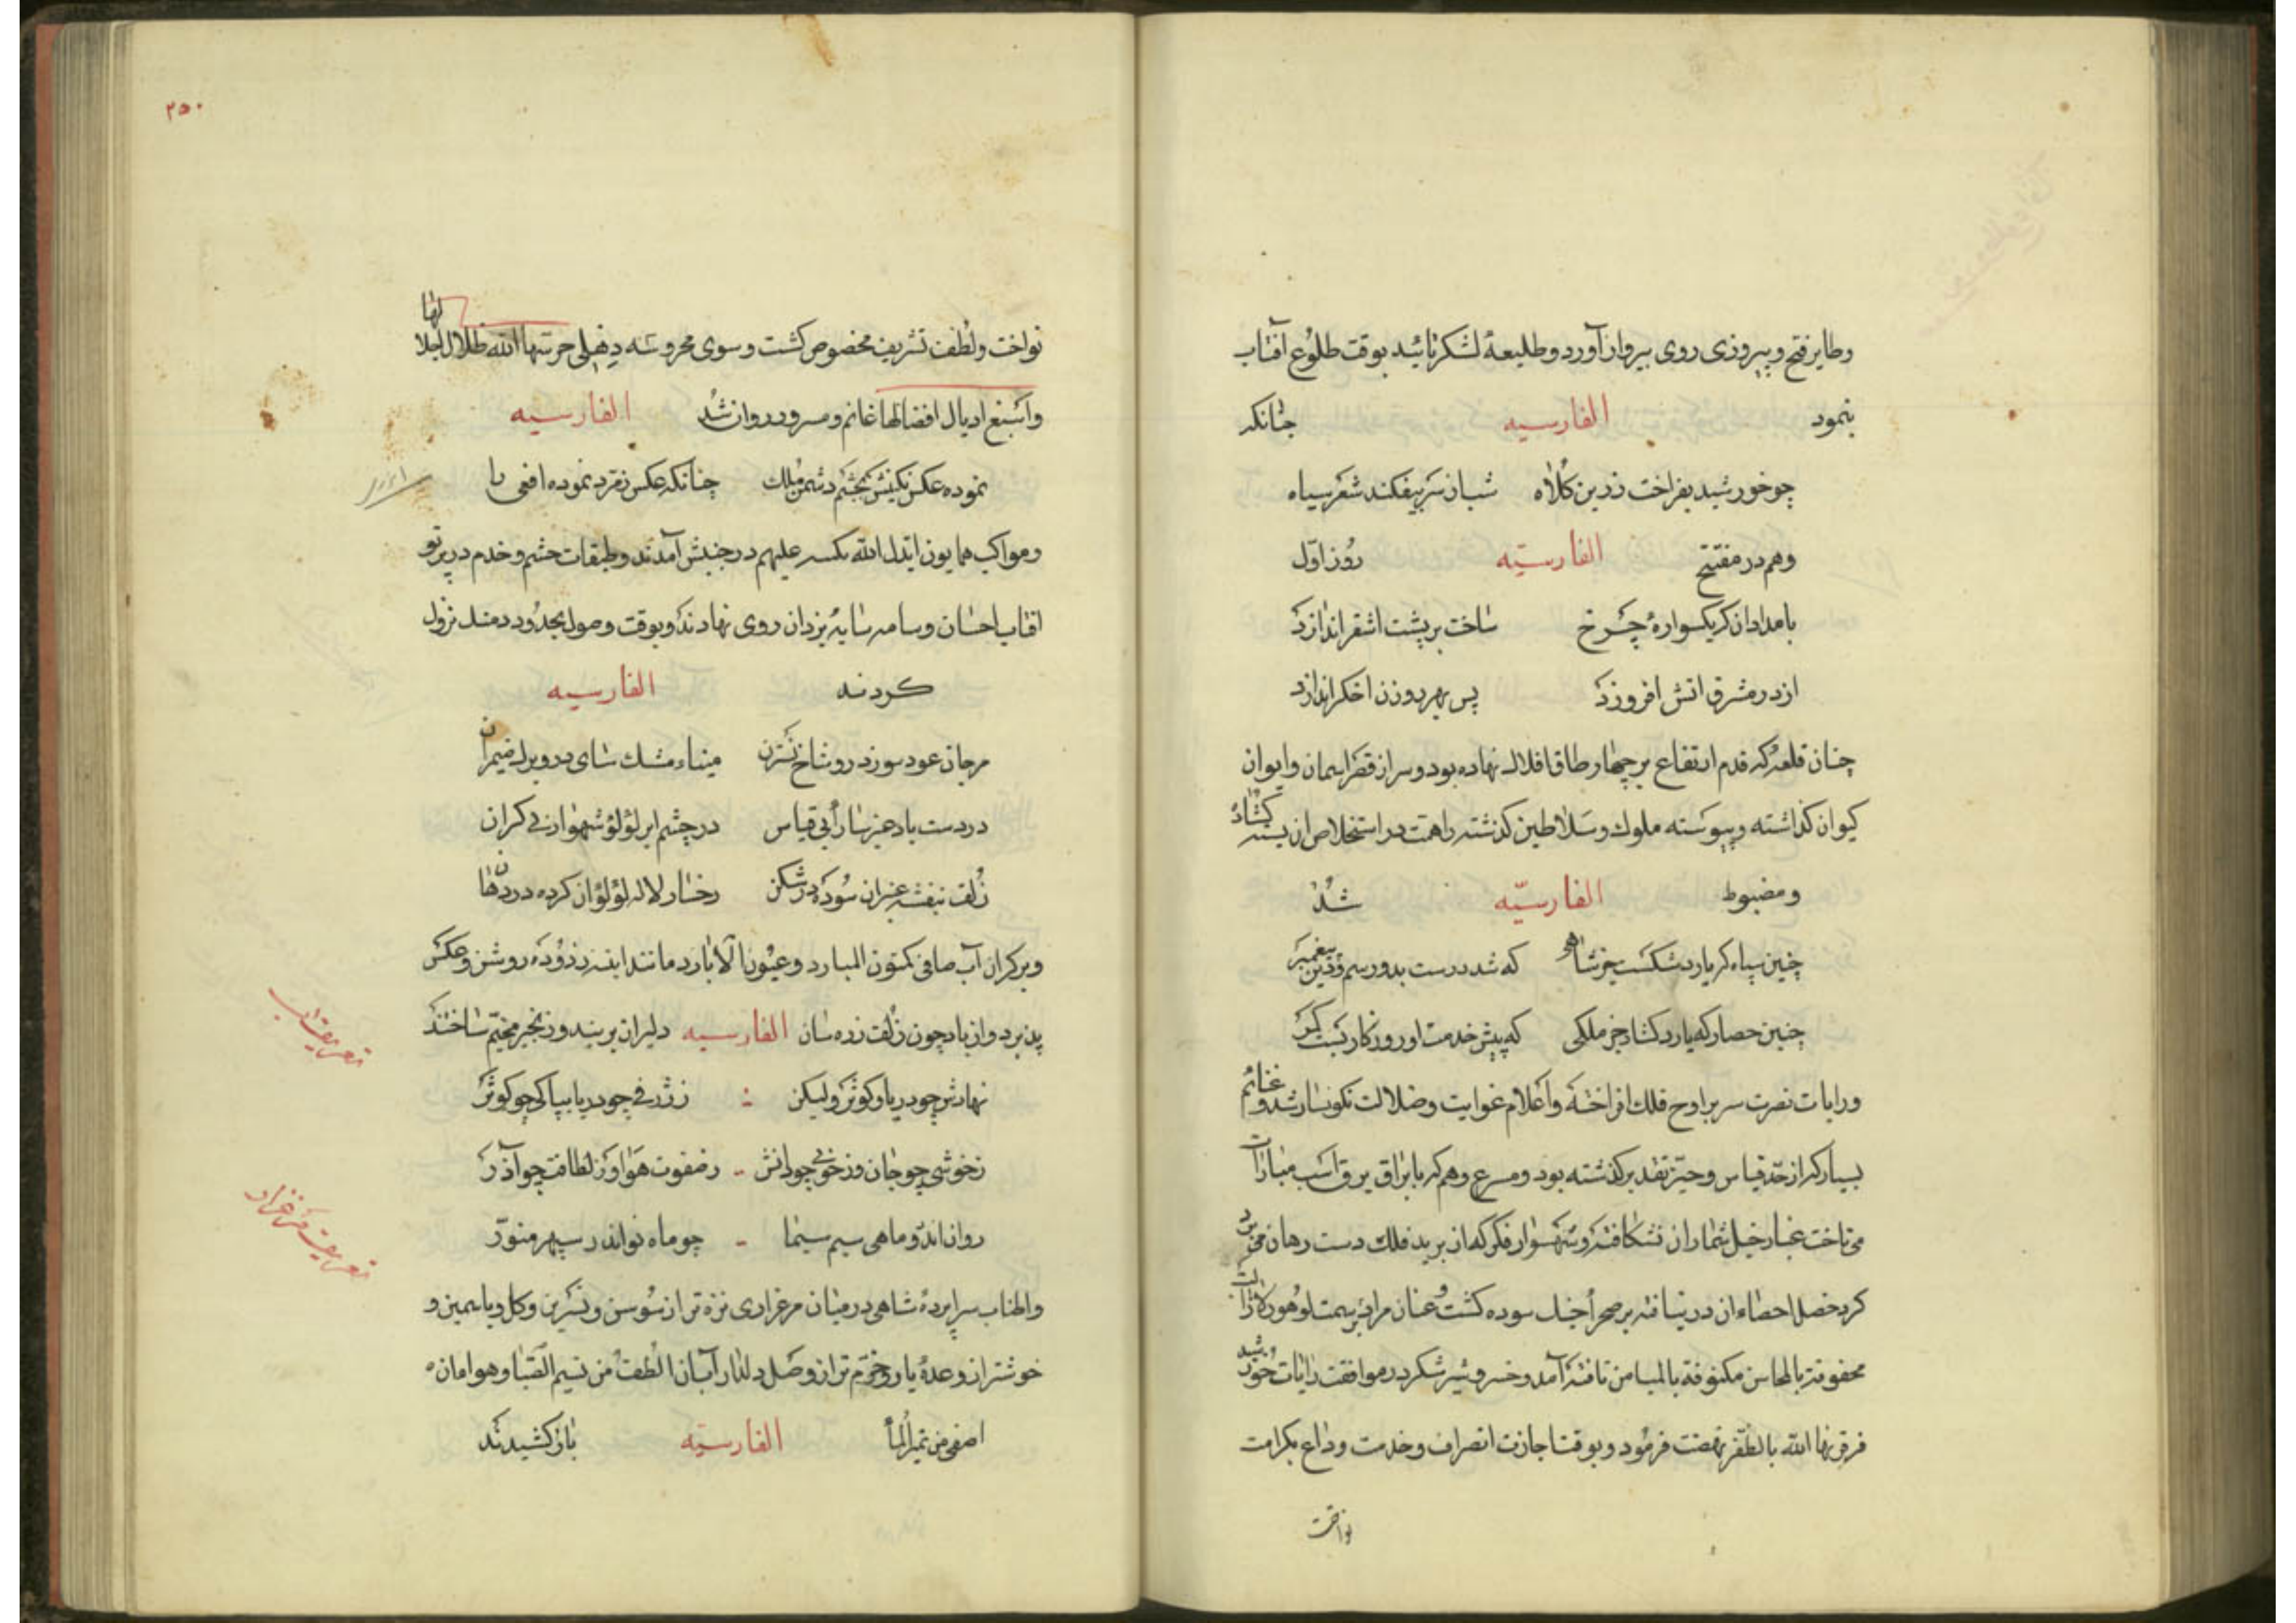 وطایر فتح و پیروزی روی بپرواز آورد و طلیعهٔ لشکر تائید بوقت طلوع آفتاب
بنمود الفارسیه چنانکه
چو خورشید بفراخت زرین کلاه شب از سر بیفکند شعر سیاه
وهم در مفتتح الفارسیّه روز اوّل
بامدادان کر یکسوارهٔ چرخ ساخت بر پشت اشقر اندازد
از در مشرق اتش افروزد پس بهر روزن اخکر اندازد
چنان قلعه که قدم ارتفاع بر چهار طاق افلاک نهاده بود و سر از قصر اسمان و ایوان
کیوان کذاشته و پیوسته ملوک و سلاطین کذشته را همت در استخلاص ان بسته کشاد
و مضبوط الفارسیّه شد
چنین سپاه که یارد شکست جز شاهی که شد درست بدو رسم و دین پیغمبر
چنین حصار که یارد کشاد جز ملکی که پیش خدمت او روزکار بست کمر
ورایات نصرت سر بر اوج فلک افراخته و اعلام غوایت و ضلالت نکونسار شد و غنائم
بسیار که از حدّ قیاس و حیّز تقدیر کذشته بود و مسرع وهم که با براق برق اسب مبارات
می تاخت غبار خیل شمار ان نشکافته و شهسوار فکر که از برید فلک دست رهان می برد
کرد خصل احصاء ان در نیافته بر صحرا جمل سوده کشت و عنان مراد بر سمت لوهور لازالت
محفوفة بالمحاسن مکنوفة بالمیامن تافته آمد و خسرو شیر شکر در موافقت رایات خورشید
فر قرنها الله بالظفر نهضت فرمود و بوقت اجازت انصراف و خدمت وداع بکرامت
نواخت
۲۵۰
نواخت و لطف تشریف مخصوص کشت و سوی محروسه دهلی حرسها الله ظلال اجلالها
واسبغ اذیال افضالها غانم و مسرور روان شد الفارسیه
نموده عکس نکینش بچشم دشمن ملک چنانکه عکس زمرد نموده افعی را
ومواکب همایون ایدل الله علیهم در جنبش آمدند و طبقات حشم و خدم در پرتو
افتاب احسان و سایه یزدان روی نهادند و بوقت وصول بحدود نزول
کردند الفارسیه
مرجان عود سوزد در و شاخ نسترن میناء مشک سای در و برک ضیمران
در دست باد عنبر سارا بی قیاس در چشم ابر لؤلؤ شهوار بی کران
زلف بنفشه عنبران سوده در شکن رخسار لاله لؤلؤ ان کرده در دهان
وبر کران آب صافی کمتون المبارد و عیون الآبار مانند اینه زدوده روشن و عکس
پذیرد و از باد چون زلف زره سان الفارسیه دلیران بر بند و زنجیر مخیّم ساختند
نهادش چو دریا و کوثر ولیکن ز ژرفی چو دریا بپاکی چو کوثر
ز خوشی چو جان و ز خوبی چو دانش ز صفوت هوا و ز لطافت چو آذر
روان اندرو ماهی سیم سیما چو ماه نو اندر سپهر منوّر
واطناب سراپردهٔ شاهی در میان مرغزاری نزه تر از سوسن و نسرین و کل و یاسمین و
خوشتر از وعدهٔ یار و خرّم تر از وصل دلدار آبان الطف من نسیم الصّبا و هوا مان
اصفی من نمیر الماء الفارسیّه باز کشیدند
تعریف آب
تعریف مرغزار